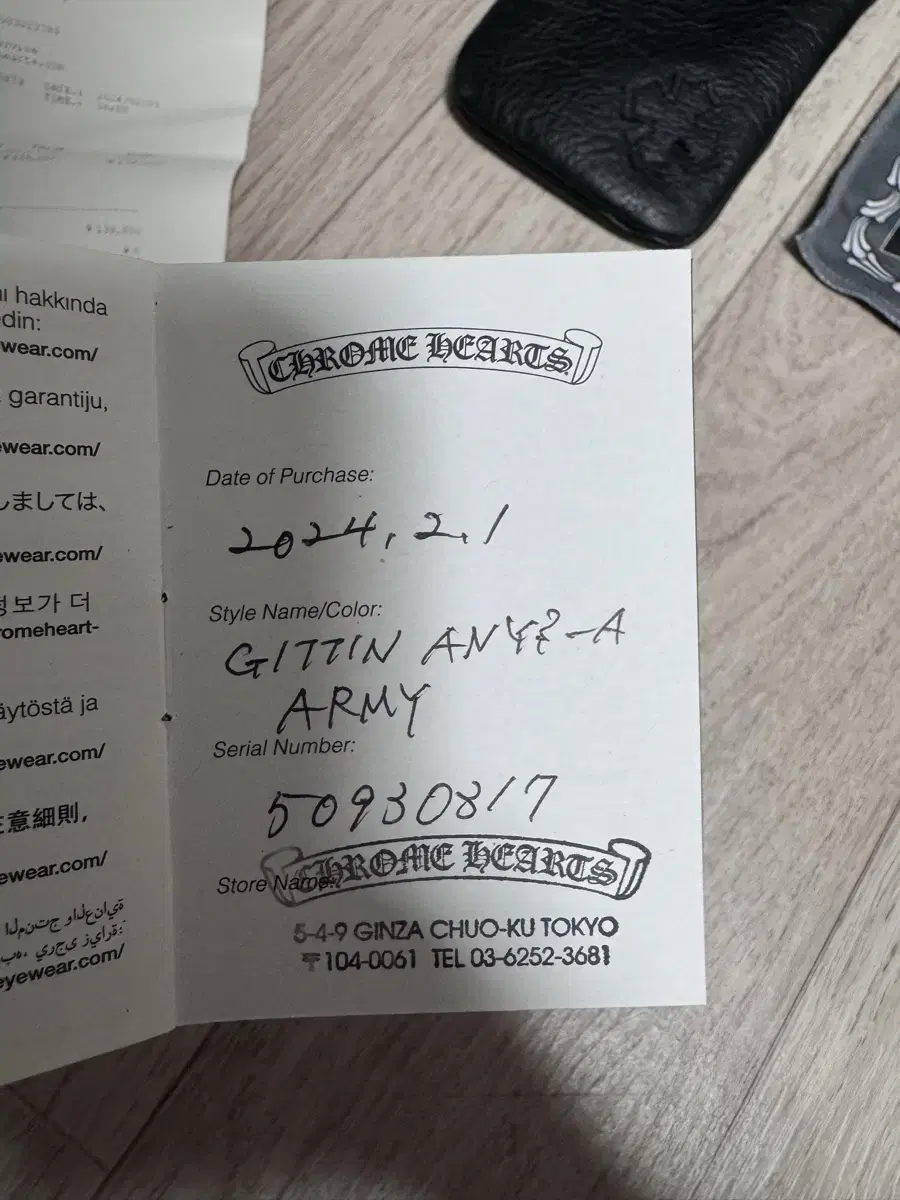 ¥138,000
ı hakkında
edin:
wear.com/
garantiju,
wear.com/
しましては、
ewear.com/
정보가 더
romeheart-
äytöstä ja
eyewear.com/
意細則,
ewear.com/
المنتج والعناية
به، يرجى زيارة:
eyewear.com/
CHROME HEARTS
Date of Purchase:
2024.2.1
Style Name/Color:
GITTIN ANY?-A
ARMY
Serial Number:
50930817
CHROME HEARTS
Store Name:
5-4-9 GINZA CHUO-KU TOKYO
〒104-0061 TEL 03-6252-3681